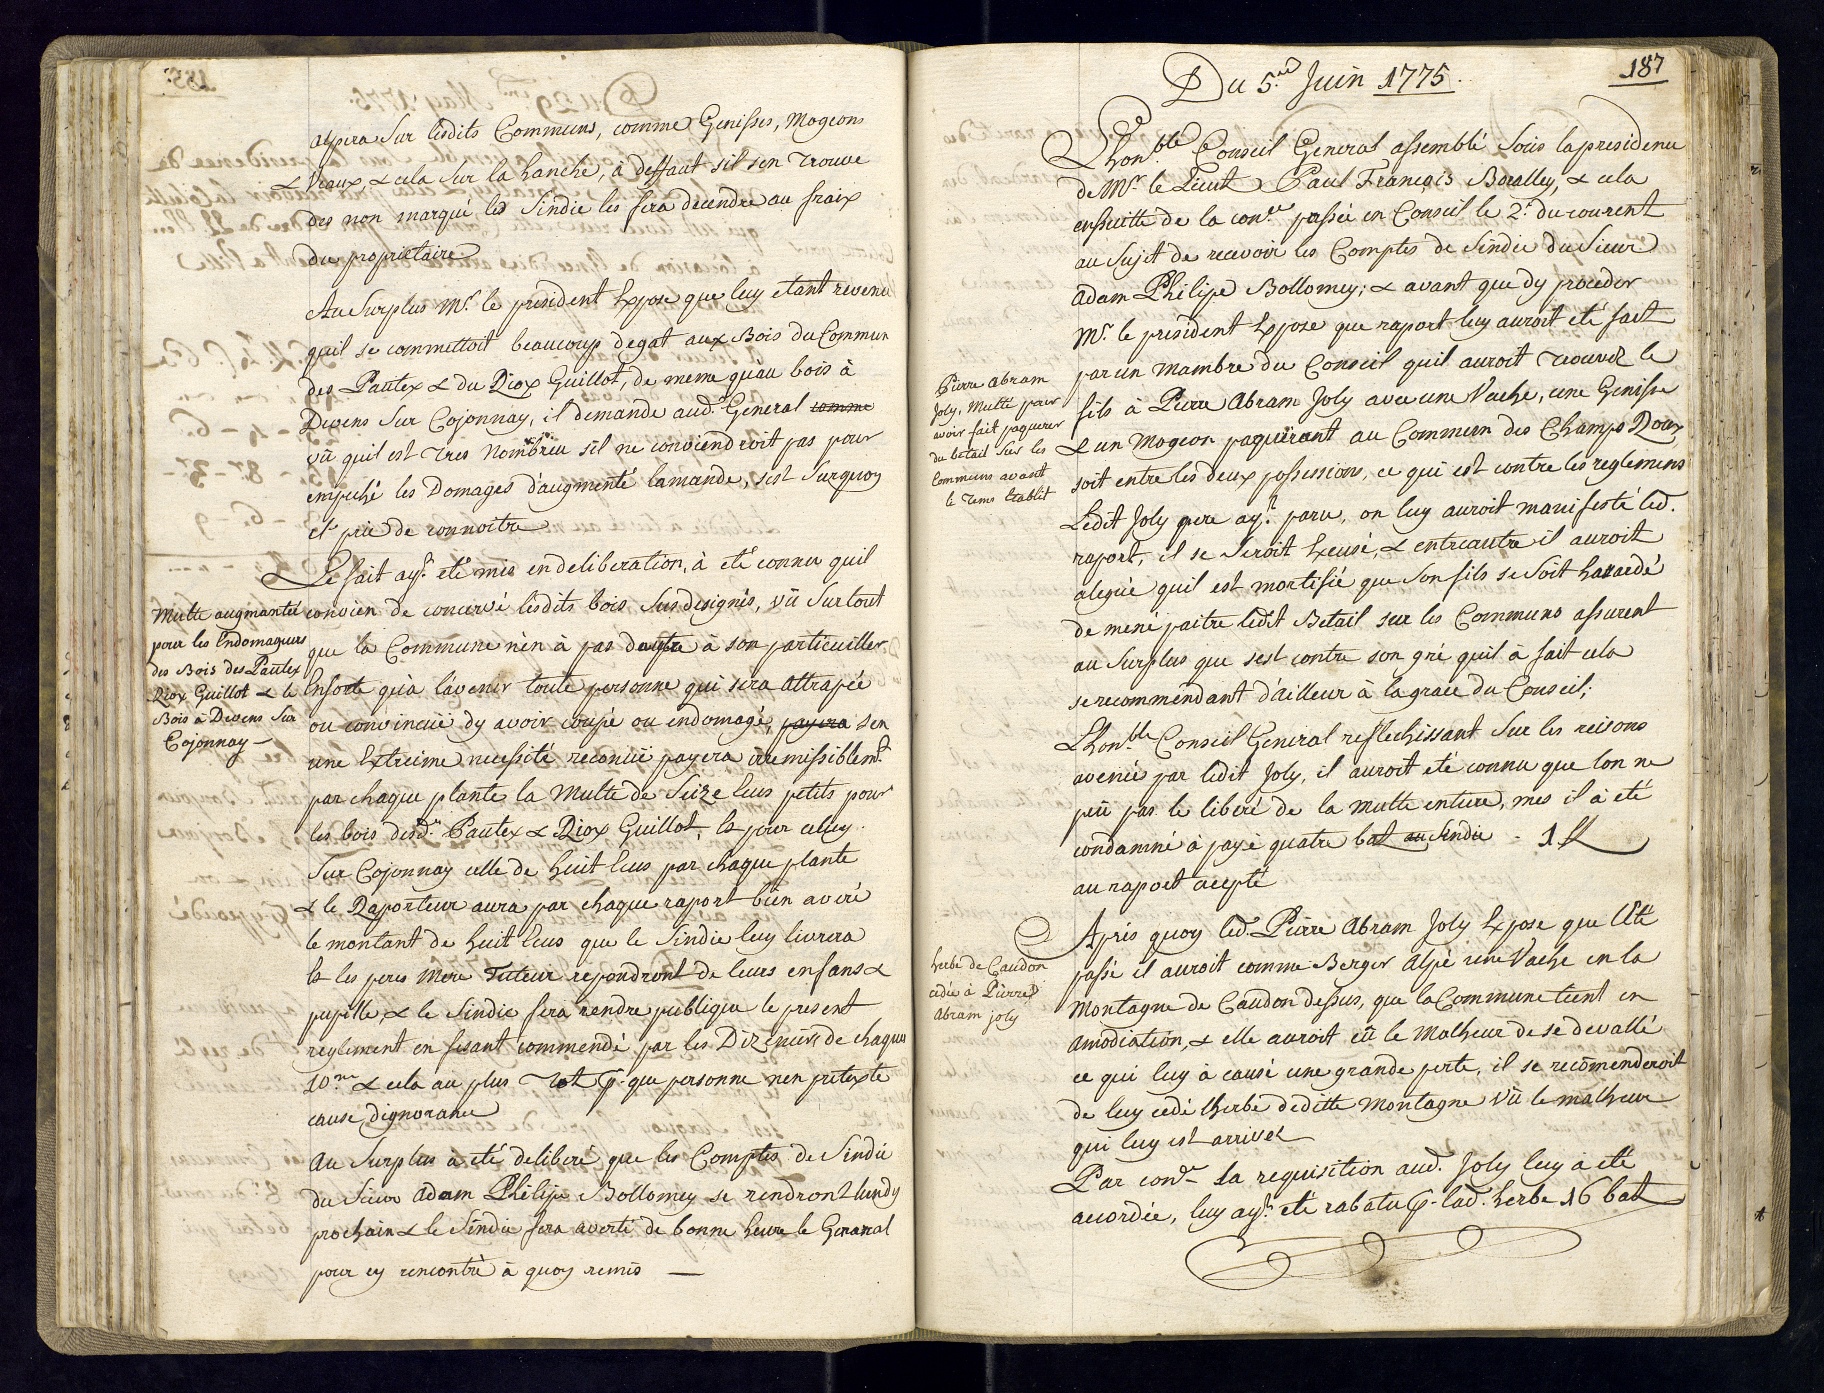 alpera Sur lesdits Communs, comme Genisses, Mogeons
& Veaux, & cela Sur la hanche, à deffaut sil sen trouve
des non marqué led Sindic les fera decendre au fraix
du proprietaire
Au Surplus Mr. le president Expose que luy etant revenu
quil se commettoit beaucoup degat aux Bois du Commun
des Pautex & du Riox Guillot, de meme qu'au bois à
Devens Sur Cojonnay, il demande aud. General comme
vû quil est tres Nombreu sil ne conviendroit pas pour
empeché les Domages d'augmenté lamande, s'est Surquoy
et prie de connoitre
Le fait ayt. eté mis en deliberation, à eté connu quil
convien de concervé lesdits bois Sus designés, vû Surtout
que la Commune n'en à pas dautre à son particeuiller
Ensorte qu'a l'avenir toute personne qui sera attrapée
ou convincuë dy avoir coupé ou endomagé, payera sen
une Extreime necessité reconuë payera irremissiblemt.
par chaque plante la Multe de Seize Ecus petits pour
les bois desd. Pautex & Riox Guillot, Et pour celuy
Sur Cojonnay celle de huit Ecus par chaque plante
& le Raporteur aura par chaque raport bien averé
le montant de huit Ecus que le Sindic luy livrera
Et les peres Mere Tuteur repondront de leurs enfans &
pupille, & le Sindic fera rendre publique le present
reglement en fesant commendé par les Dizeniers de chaque
10.ne & cela au plus tot p. que personne nen pretexte
cause dignorance
Au Surplus à eté deliberé que les Comptes de Sindic
du Sieur Adam Philipe Bollomey se rendront lundy
prochain & le Sindic fera averti de bonne heure le General
pour ey rencontré à quoy remis —
Multe augmantée
pour les Endomageurs
des Bois des Pautex
Riox Guillot & le
Bois à Devens Sur
Cojonnay —
Du 5.me Juin 1775.
187
Lhon.ble Conseil General assemblé Sous la presidence
de Mr. le Lieut. Paul François Boralley, & cela
ensuitte de la con.ce passée en Conseil le 2.e du courent
au Sujet de recevoir les Comptes de Sindic du Sieur
Adam Philipe Bollomey; & avant que dy proceder
Mr. le president Expose que raport luy auroit eté fait
par un mambre du Conseil quil auroit trouver le
fils à Pierre Abram Joly avec une Vache, une Genisse
& un Mogeon paquerant au Commun des Champs Roux
soit entre les deux possessions, ce qui est contre les reglemens
Ledit Joly pere ayt. paru, on luy auroit manifesté led.
raport, il se Seroit Excusé, & entreautre il auroit
alegué quil est mortifié que Son fils se Soit hazardé
de mené paitre ledit Betail sur les Communs assurent
au Surplus que sest contre son gré quil à fait cela
se recommendant d'ailleur à la grace du Conseil;
Lhon.ble Conseil General reflechissant Sur les reisons
avenues par ledit Joly, il auroit eté connu que lon ne
peu pas le liberé de la multe entiere, mes il à eté
condamné à payé quatre bat au Sindic - 1 fl
au raport accepté
Apres quoy led. Pierre Abram Joly Expose que l'Eté
passé il auroit comme Berger Alpé une Vache en la
Montagne de Caudon dessus, que la Commune tient en
amodiation, & elle auroit eü le Malheur de se devallé
ce qui luy à causé une grande perte, il se recomenderoit
de luy cedé lherbe deditte Montagne vû le malheur
qui luy est arrivez
Par con.ce la requisition aud. Joly luy à eté
acordée, luy ayt. eté rabatu p. lad. herbe 16 bat
Pierre Abram
Joly, Multé pour
avoir fait paquerer
du betail Sur les
Communs avant
le tems Etablit
herbe de Caudon
cedée à Pierre
Abram joly